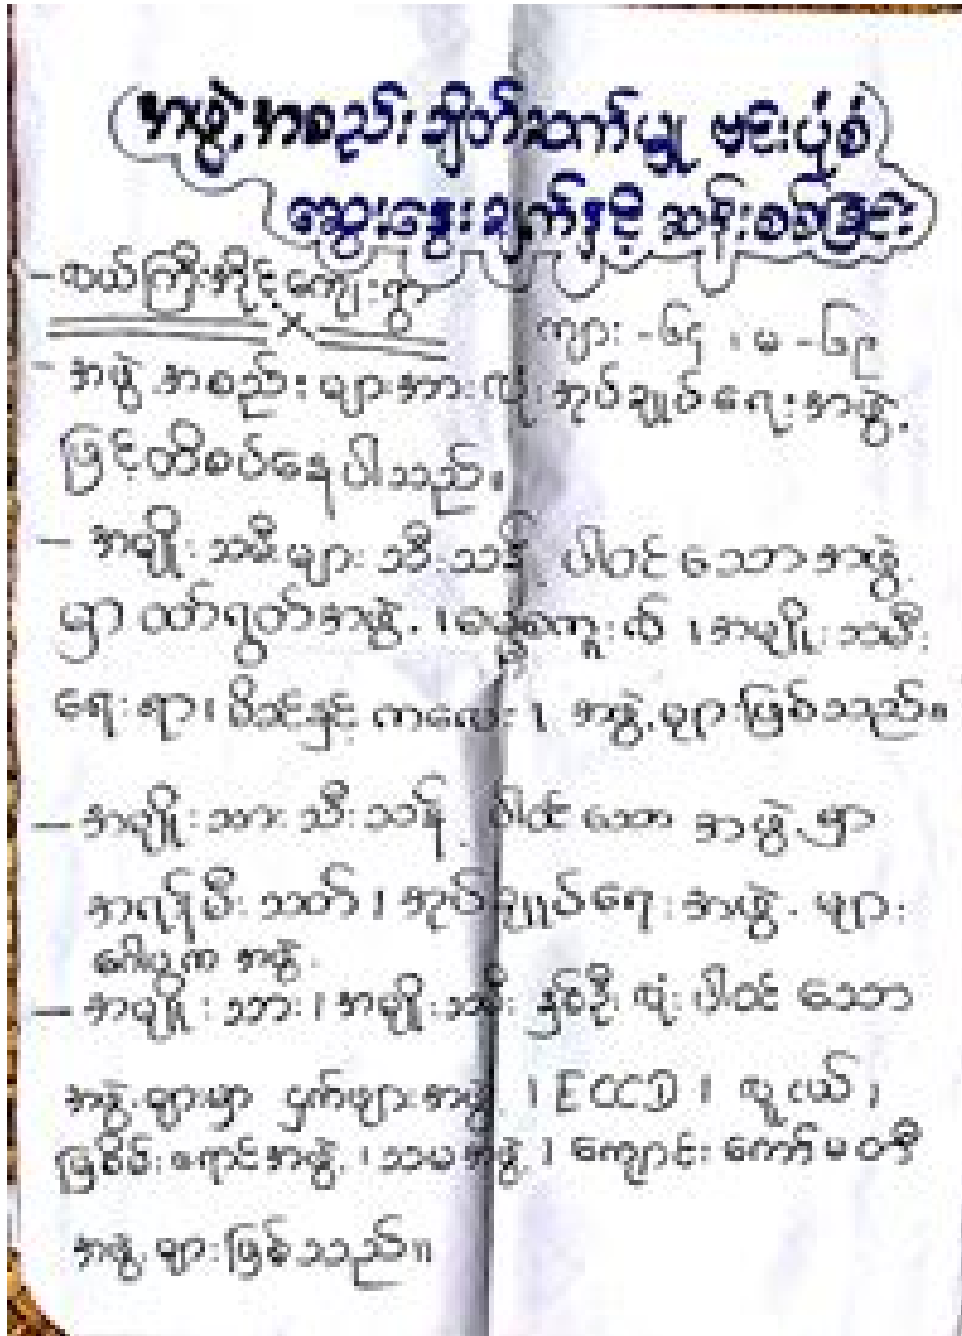 အဖွဲ့အစည်းချိတ်ဆက်မှု မင်းပုံစံ
ဆွေးနွေးချက်နှင့် ဆန်းစစ်ခြင်း
- လယ်ကြီးအိုင့်ကျေးရွာ
ကျား - ၆၄ ၊ မ - ၆၉
- အဖွဲ့အစည်းများအားလုံးအုပ်ချုပ်ရေးအဖွဲ့
ဖြင့်ထိစပ်နေပါသည်။
- အမျိုးသမီးများသီးသန့် ပါဝင်သောအဖွဲ့
မှာ ထော်ရွတ်အဖွဲ့၊ ၊ အမျိုးသမီး
ရေးရာ၊ မိခင်နှင့် ကလေး၊ အဖွဲ့များဖြစ်သည်။
- အမျိုးသားသီးသန့် ပါဝင်သော အဖွဲ့မှာ
အရန်မီးသတ်၊ အုပ်ချုပ်ရေးအဖွဲ့များ
ဂေါပက အဖွဲ့
- အမျိုးသား၊ အမျိုးသမီး နှစ်ဦးလုံးပါဝင်သော
အဖွဲ့များမှာ ငှက်ဖျားအဖွဲ့၊ ECCD ၊ လူငယ်၊
မြစိမ်းရောင်အဖွဲ့၊ သမအဖွဲ့၊ ကျောင်းကော်မတီ
အဖွဲ့များဖြစ်သည်။